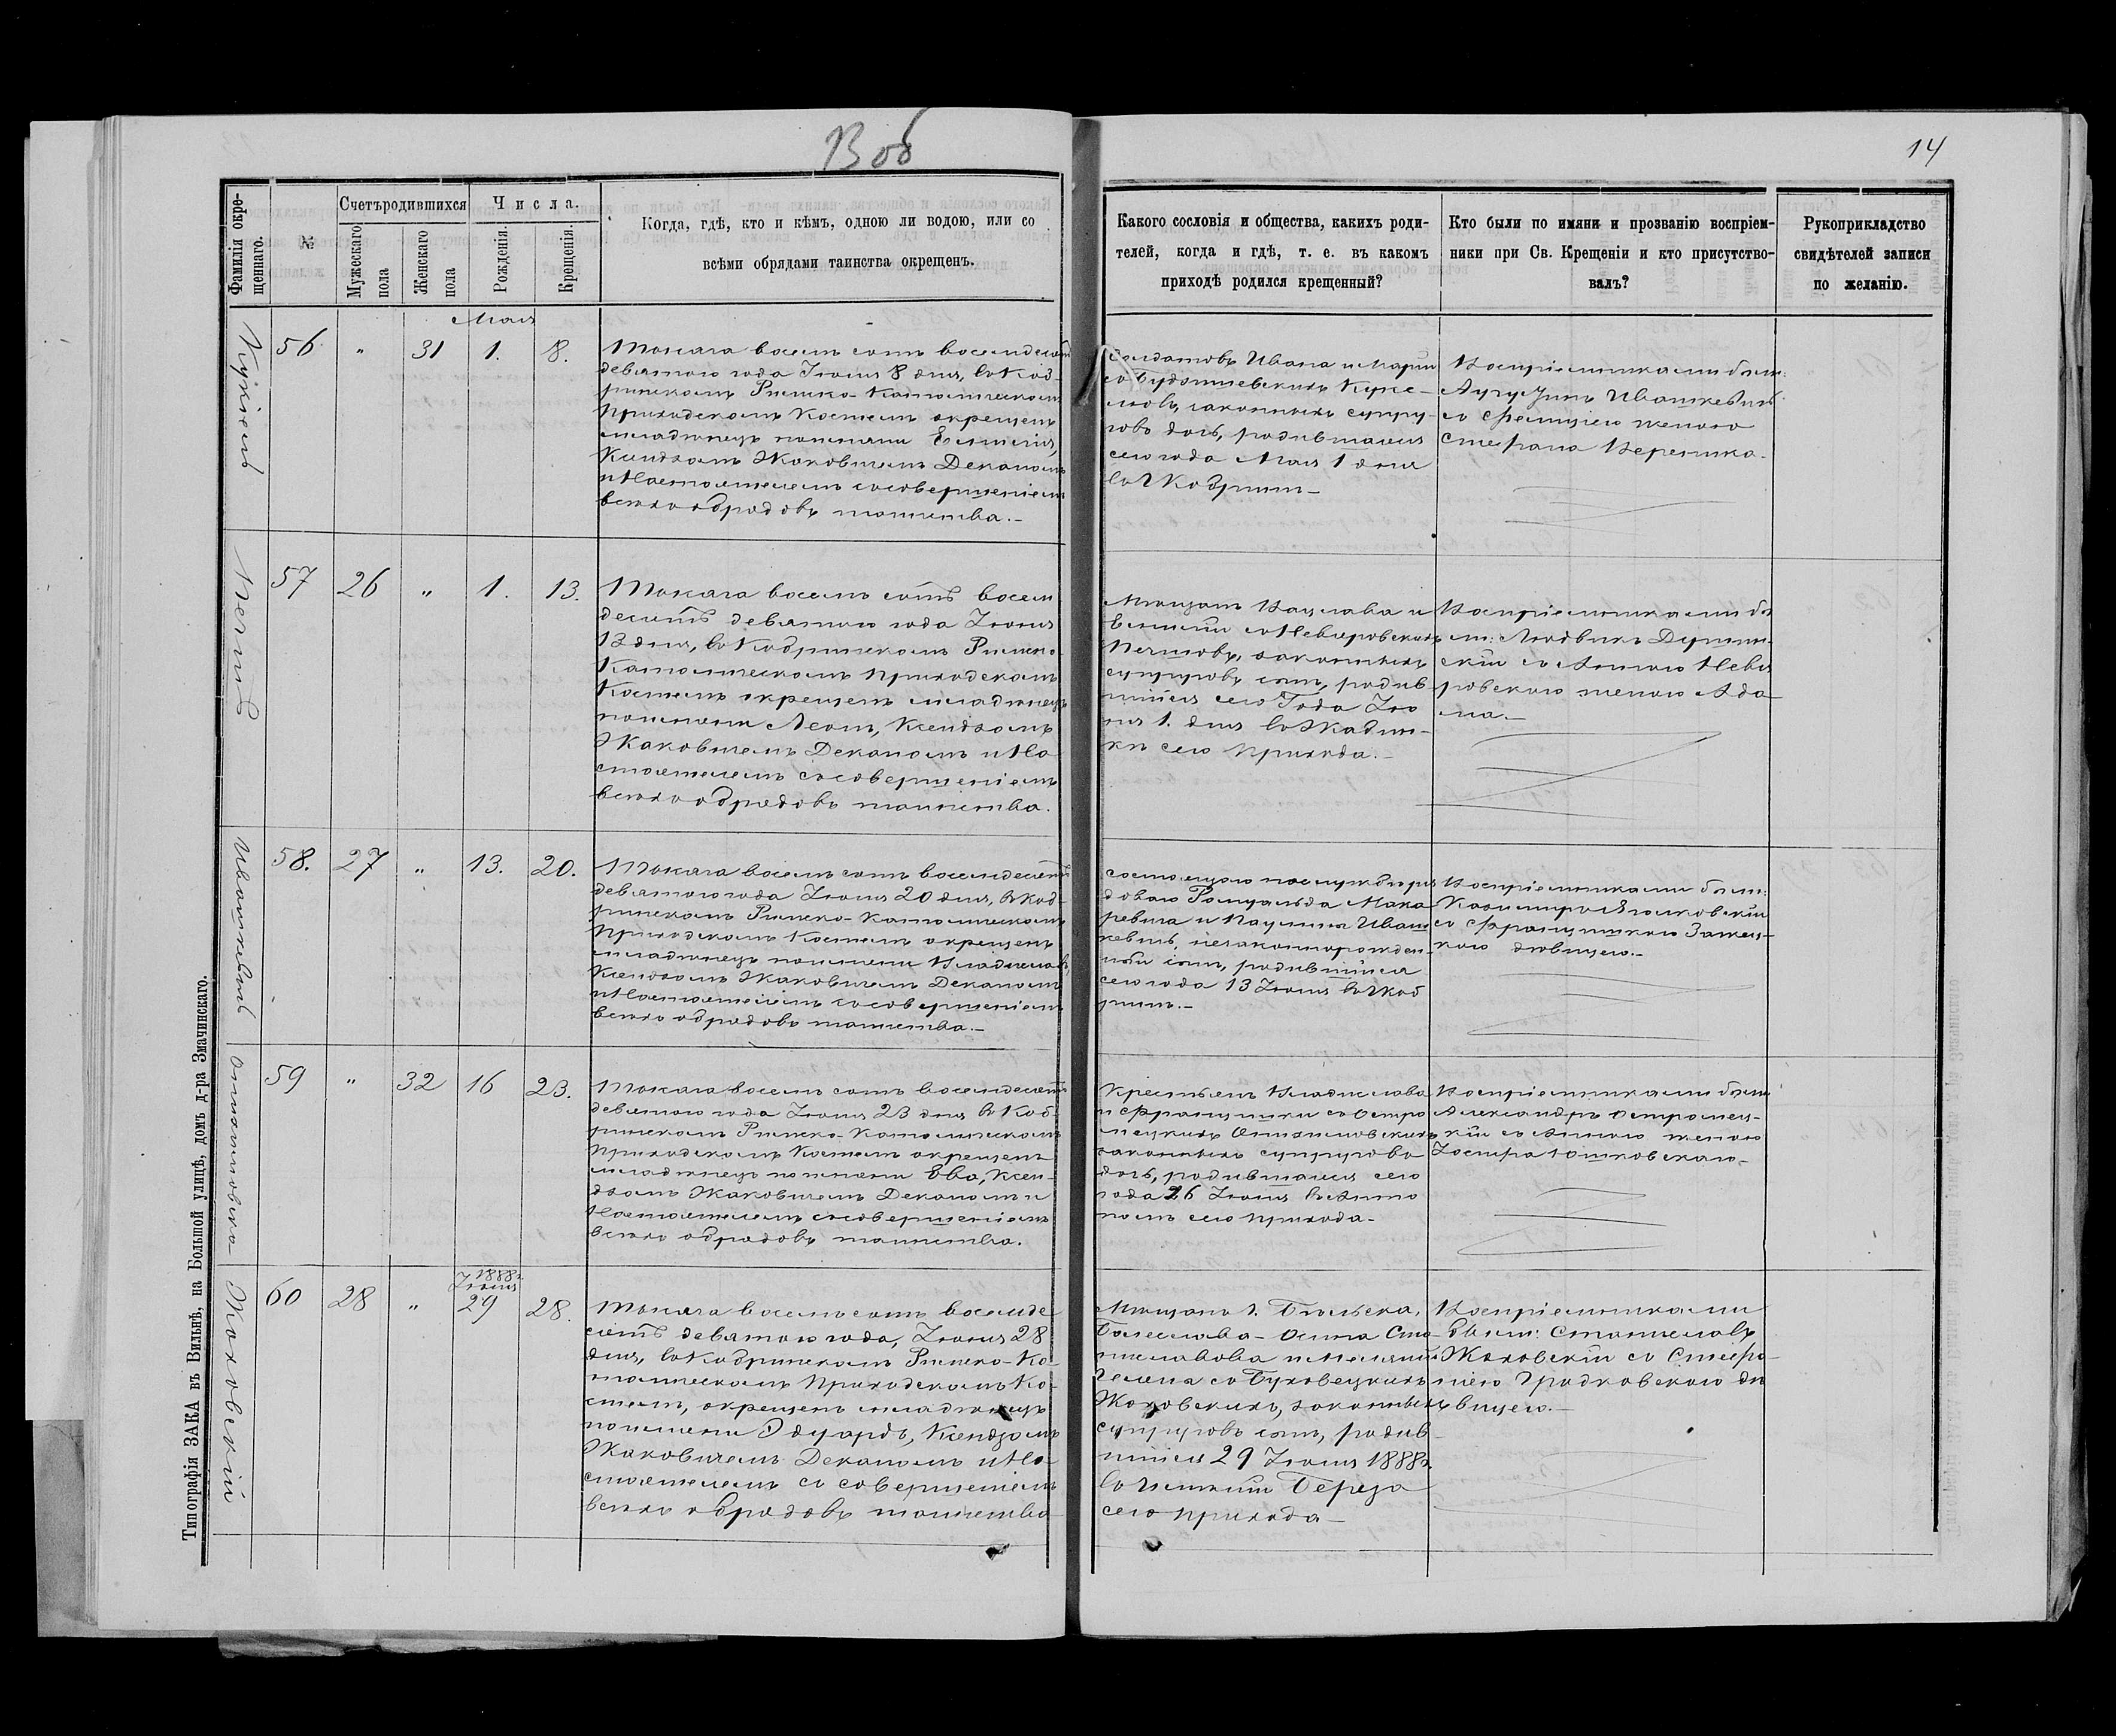 13 об
14
Фамилія окре-
щеннаго.
№
Счетъ родившихся
Мужескаго
пола
Женскаго
пола
Числа.
Рожденія.
Крещенія.
Когда, гдѣ, кто и кѣмъ, одною ли водою, или со
всѣми обрядами таинства окрещенъ.
Какого сословія и общества, какихъ роди-
телей, когда и гдѣ, т. е. въ какомъ
приходѣ родился крещенный?
Кто были по имяни и прозванію воспріем-
ники при Св. Крещеніи и кто присутство-
валъ?
Рукоприкладство
свидѣтелей записи
по желанію.
56
"
31
Мая
1.
8.
Тысяча восемь сотъ восемдесятъ
девятого года Іюня 8 дня, въ Коб-
ринскомъ Римско-Католическомъ
Приходскомъ Костелѣ окрещенъ
младенецъ поимяни Емилія,
Ксендзомъ Жаковичемъ Деканомъ
и Настоятелемъ со совершеніемъ
всѣхъ обрядовъ таинства.-
Солдатовъ Ивана и Маріи
законныхъ супру-
говъ дочь, родившаяся
сего года Мая 1 дня
въ г Кобринѣ-
Воспріемниками были:
Ивашкевичъ
женою
Стефана
57
26
"
1.
13.
Тысяча восемь сотъ восем
десятъ девятого года Іюня
13 дня, въ Кобринскомъ Римско-
Католическомъ Приходскомъ
Костелѣ окрещенъ младенецъ
поимяни Леонъ, Ксендзомъ
Жаковичемъ Деканомъ и На-
стоятелемъ со совершеніемъ
всѣхъ обрядовъ таинства.
Мѣщанъ Вацлава и
Емиліи со Невяровскихъ
законныхъ
супруговъ сынъ, родив
шійся сего Года Ію
ня 1. дня
сего прихода.-
Воспріемниками бы
ли: Людвикъ
со Анною Невя
ровскою женою Ада
ма.-
Ивашкевичъ
58.
27
"
13.
20.
Тысяча восемь сотъ восемдесятъ
девятого года Іюня 20 дня, въ Коб-
ринскомъ Римско-Католическомъ
Приходскомъ Костелѣ окрещенъ
младенецъ поимяни Владиславъ,
Ксендзомъ Жаковичемъ Деканомъ
и Настоятелемъ со совершеніемъ
всѣхъ обрядовъ таинства.-
Ромуальда Мака
ревича и Паулины Иваш
кевичъ, незаконнорожден-
ный сынъ, родившійся
сего года 13 Іюня въ г Коб
ринѣ.-
Воспріемниками были:
со Францишкою
дѣвицею.-
59
"
32
16
23.
Тысяча восемь сотъ восемдесятъ
девятого года Іюня 23 дня въ Коб-
ринскомъ Римско-Католическомъ
Приходскомъ Костелѣ окрещенъ
младенецъ поимяни Ева, Ксен-
дзомъ Жаковичемъ Деканомъ и
Настоятелемъ со совершеніемъ
всѣхъ обрядовъ таинства.
Крестьянъ Владислава
и Францишки со Остро
мецкихъ
законныхъ супруговъ
дочь, родившаяся сего
года 16 Іюня въ Анто
полѣ сего прихода-
Воспріемниками были
Александръ Остромец-
кій со Анною женою
Юшковскаго-
Жоховскій
60
28
"
1888 г.
Іюня
29
28.
Тысяча восемь сотъ восемде
сятъ девятого года, Іюня 28
дня, въ Кобринскомъ Римско-Ка-
толическомъ Приходскомъ Ко-
стелѣ, окрещенъ младенецъ
поимяни Эдуардъ, Ксендзомъ
Жаковичемъ Деканомъ и На-
стоятелемъ со совершеніемъ
всѣхъ обрядовъ таинства
Мѣщанъ г. Бѣльска,
Болеслава-
Жоховскихъ, законныхъ
супруговъ сынъ, родив-
шійся 29 Іюня 1888 г.
въ имѣніи Береза
сего прихода-
Воспріемниками
были: Станиславъ
Жоховскій со Стефа-
ніею Гродковскою дѣ
вицею.-
Типографія ЗАКА въ Вильнѣ, на Большой улицѣ, домъ д-ра Змачинскаго.